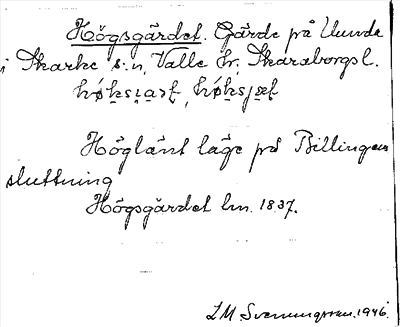 Högsgärdet. Gärde på Uunda
i Skarke s:n, Valle hr, Skaraborgs l.
Höglänt läge på Billingens
sluttning
Högsgärdet lm. 1837.
L M Svenungsson. 1946